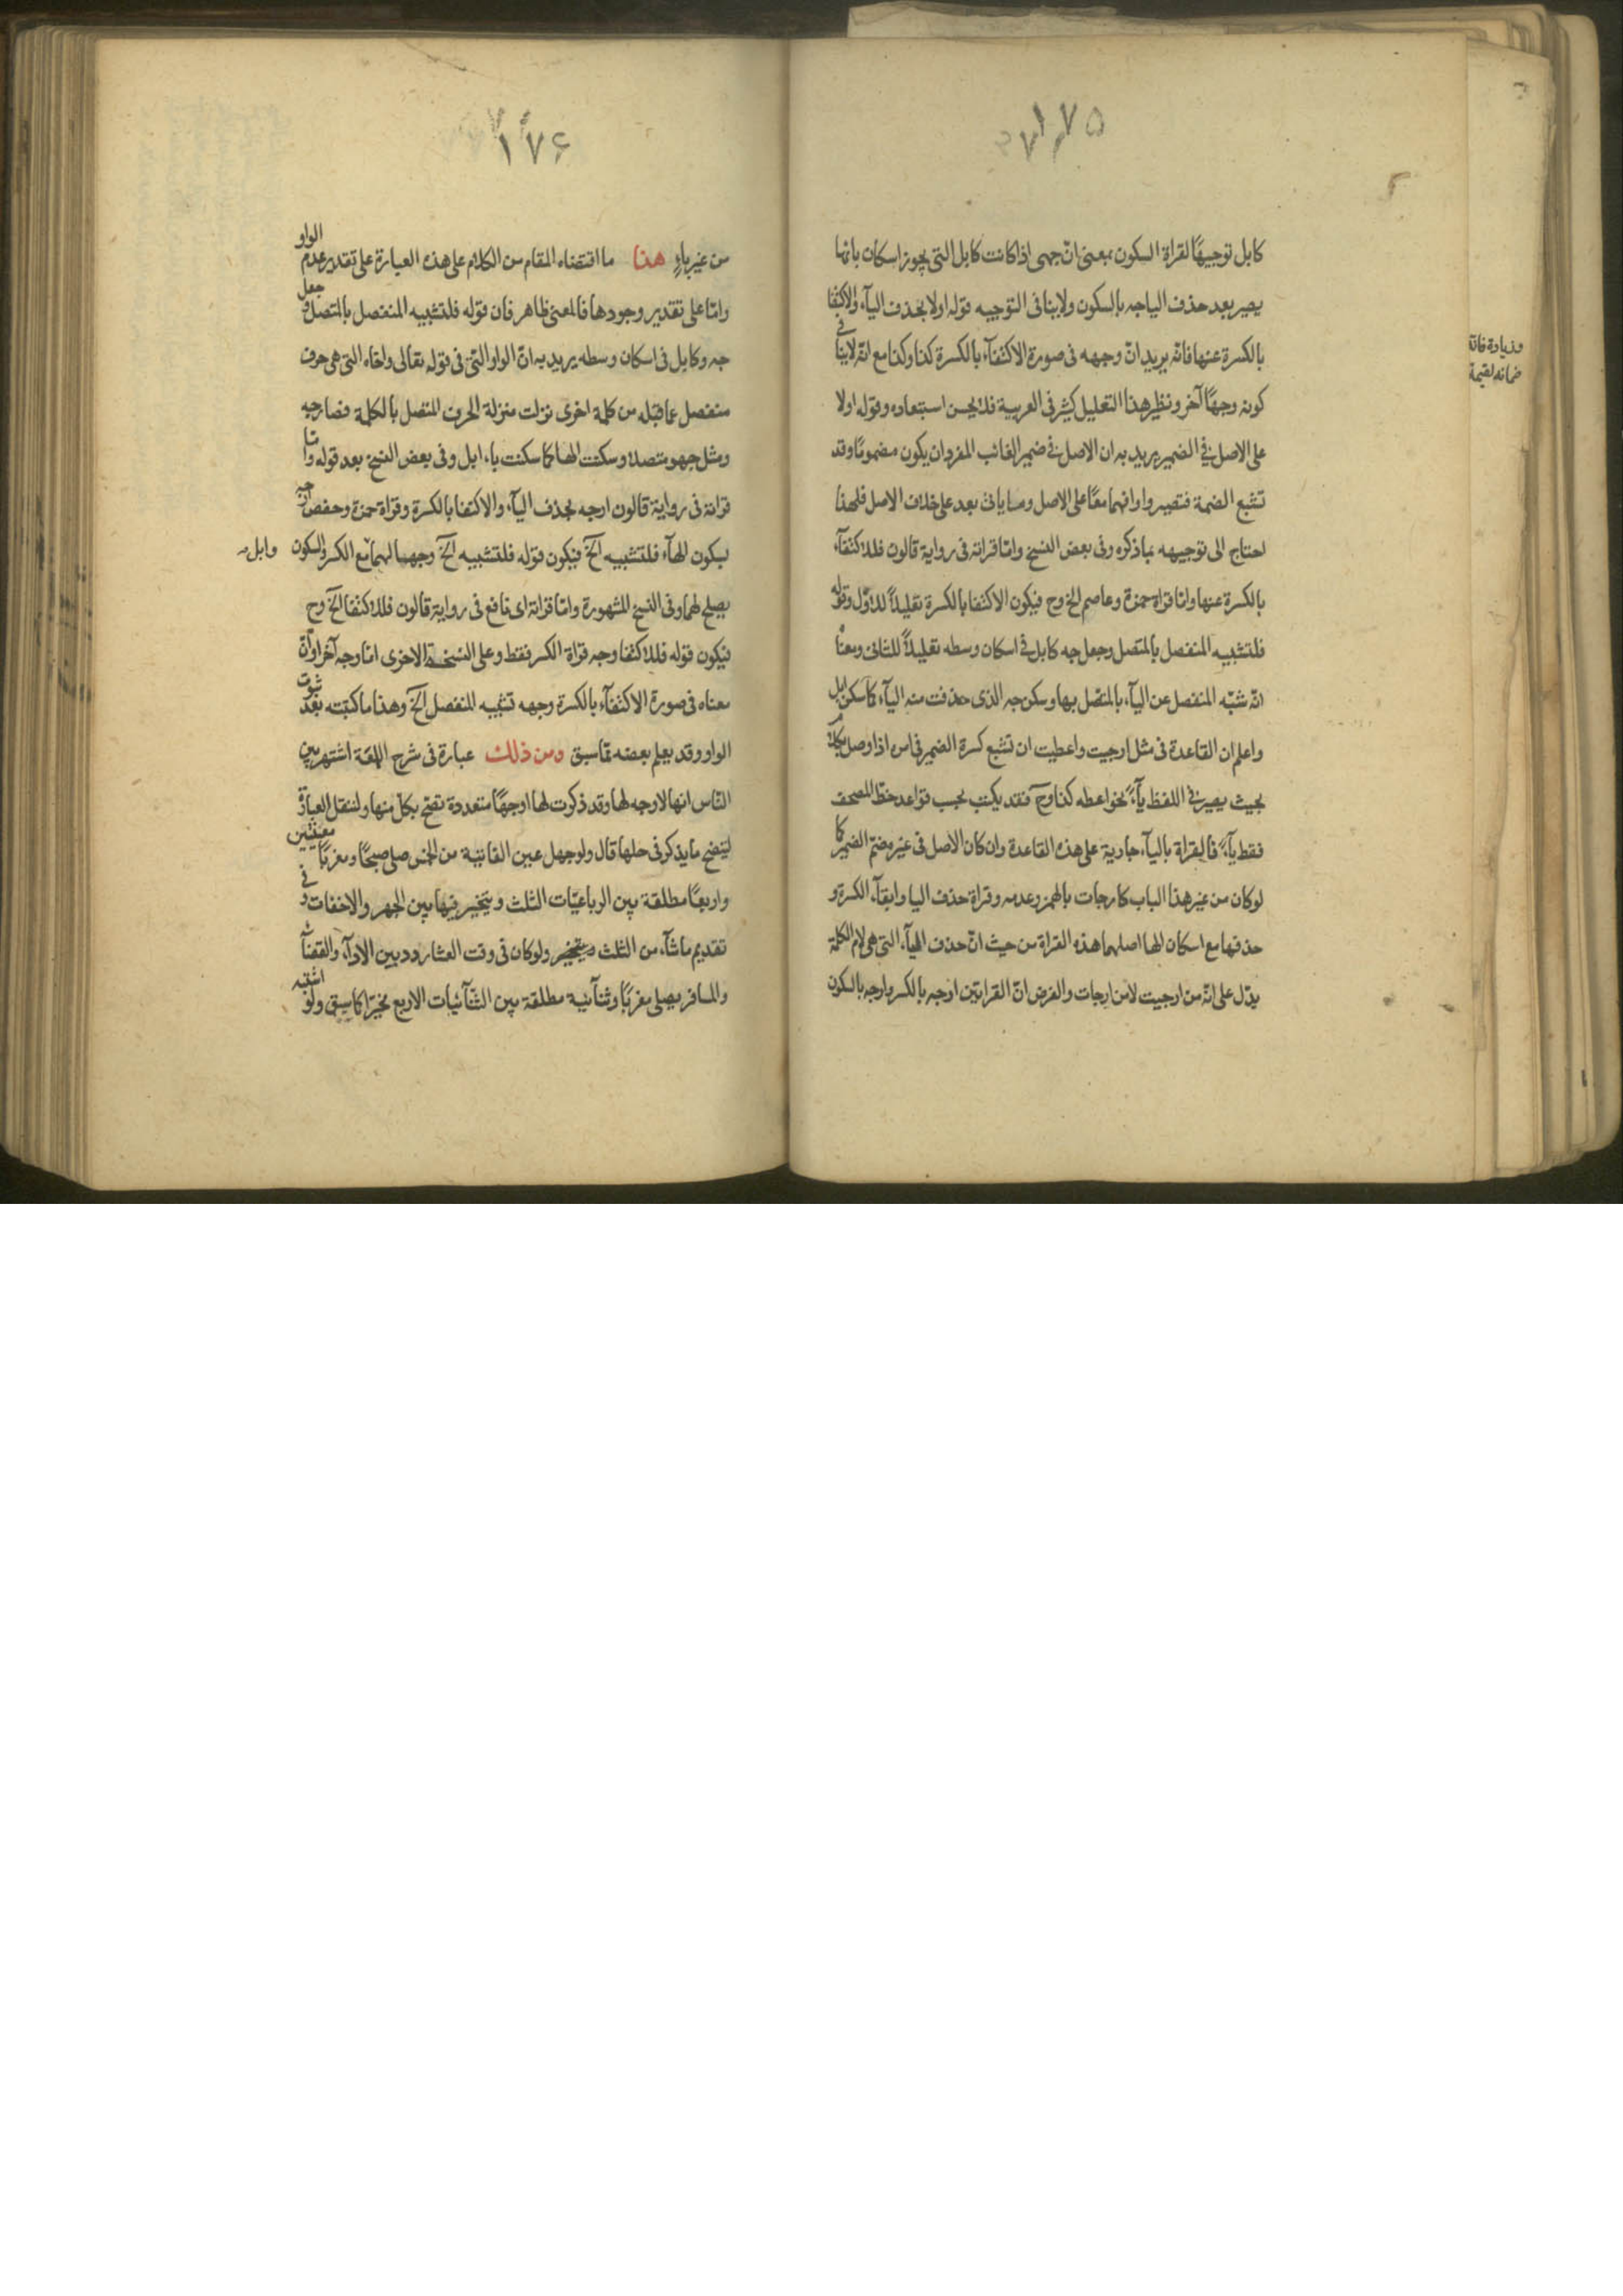 ١٧٥
كابل توجيهًا لقراة السكون بمعنى انّ جهى اذا كانت كابل التى يجوز اسكان بائها
يصير بعد حذف الياجه بالسكون ولاينافى التوجيه قوله اولا بحذف اليآء والاكتفا
بالكسرة عنها فانّه يريد انّ وجهه فى صورة الاكتفآء بالكسرة كذا وكذا مع انّه لاينافى
كونه وجهًا آخر ونظير هذا التعليل كثير فى العربية فلا يحسن استبعاده وقوله اولا
على الاصل فى الضمير يريد به ان الاصل فى ضمير الغائب المفرد ان يكون مضمومًا وقد
تشبع الضمة فتصير واوا فهما معًا على الاصل وما ياتى بعد على خلاف الاصل فلهذا
احتاج الى توجيهه بما ذكره وفى بعض النسخ وامّا قراته فى رواية قالون فللاكتفآء
بالكسرة عنها وامّا قراة حمزة وعاصم الخ وح فيكون الاكتفا بالكسرة تعليلاً للاوّل وقوله
فلتشبيه المنفصل بالمتصل وجعل جه كابل فى اسكان وسطه تعليلاً للثانى ومعناه
انّه شبّه المنفصل عن اليآء بالمتّصل بها وسكن جه الذى حذفت منه اليآء كما سكن ابل
واعلم ان القاعدة فى مثل ارجيت واعطيت ان تشبع كسرة الضمير فى اس اذا وصل بكلام
بحيث يصير فى اللفظ يآءً نحو اعطه كذا وح فقد يكتب بحسب قواعد خطّ المصحف
فقط يآءً فالقراة باليآء جارية على هذه القاعدة وان كان الاصل فى غيره ضمّ الضمير كما
لو كان من غير هذا الباب كارجات بالهمز وعدمه وقراة حذف اليا وابقآء الكسرة و
حذفها مع اسكان الها اصلهما هذه القراة من حيث انّ حذف اليآء التى هى لام الكلمة
يدّل على انّه من ارجيت لا من ارجات والغرض انّ القراءتين ارجه بالكسر وارجه بالسكون
وزيادة فانّه
ضمانه لقيمة
١٧۶
من غير ياءٍ هذا ما اقتضاه المقام من الكلام على هذه العبارة على تقدير عدم الواو
وامّا على تقدير وجودها فالمعنى ظاهر فان قوله فلتشبيه المنفصل بالمتصل وجعل
جه وكابل فى اسكان وسطه يريد به انّ الواو الّتى فى قوله تعالى واخاه التى هى حرف
منفصل عما قبله من كلمة اخرى نزلت منزلة الحرف المتصل بالكلمة فصار جه
ومثل جهو متصلا وسكنت الها كما سكنت باء ابل وفى بعض النسخ بعد قوله وامّا
قراته فى رواية قالون ارجه بحذف اليآء والاكتفا بالكسرة وقراة حمزة وحفص ارجه
بسكون الهآء فلتشبيه الخ فيكون قوله فلتشبيه الخ وجهها لهما مع الكسر والسكون
وابل
يصلح لهما وفى النسخ المشهورة وامّا قراته اى نافع فى رواية قالون فللاكتفا الخ وح
فيكون قوله فللاكتفا وجه قراة الكسر فقط وعلى النسخة الاخرى امّا وجه آخر او انّ
معناه فى صورة الاكتفآء بالكسرة وجهه تشبيه المنفصل الخ وهذا ما كتبته بعد ثبوت
الواو وقد يعلم بعضه ممّا سبق ومن ذلك عبارة فى شرح اللمعة اشتهر بين
النّاس انها لاوجه لها وقد ذكرت لها اوجهًا متعددة تصحّ بكلّ منها ولننقل العبارة
ليتضح ما يذكر فى حلها قال ولو جهل عين الفائتة من الخمس صلى صبحًا ومغربًا معيّنتين
واربعًا مطلقة بين الرباعيّات الثلث ويتخير فيها بين الجهر والاخفات وفى
تقديم ماشآء من الثلث ولو كان فى وقت العشا ردد بين الادآء والقضآء
والمسافر يصلى مغربًا وثنآئية مطلقة بين الثّنآئيات الاربع مخيّرًا كما سبق ولو اشتبه